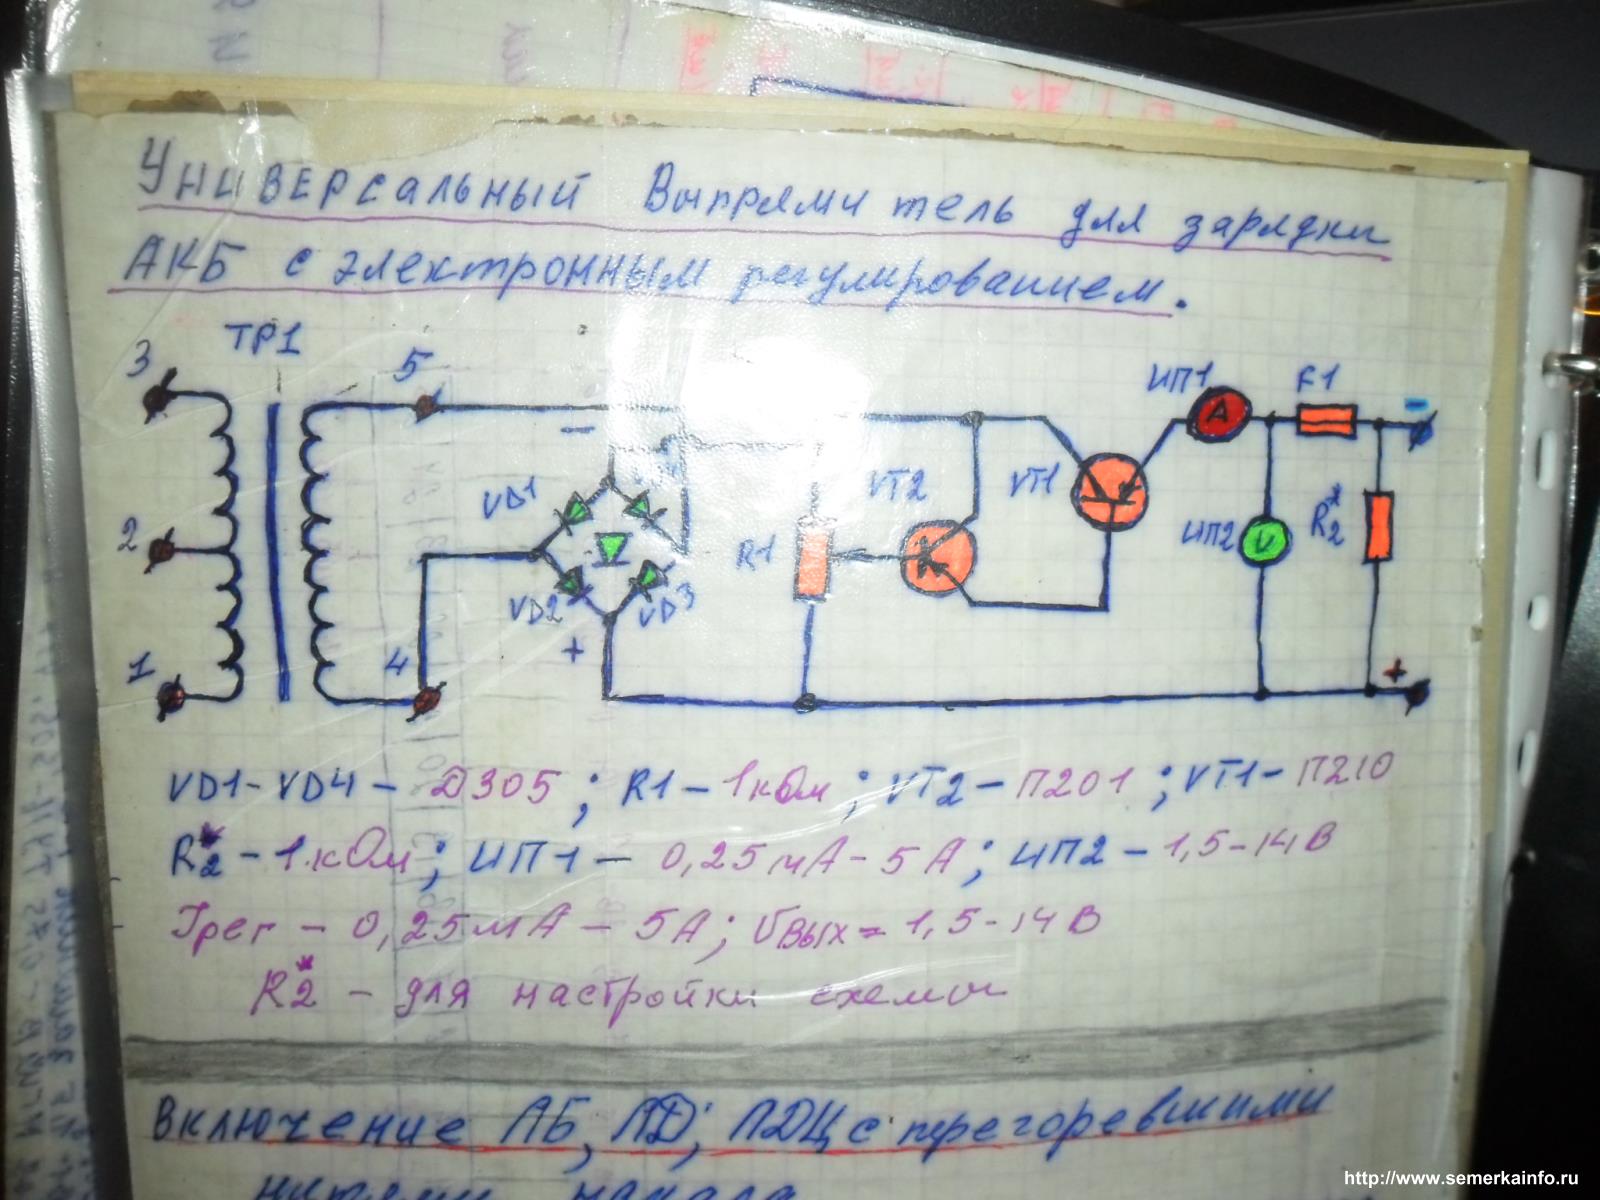 Универсальный Выпрямитель для зарядки
АКБ с электронным регулированием.
ТР1
3
5
ИП1
F1
-
A
-
VD1
VT2
VT1
2
R1
ИП2
V
R2*
VD2
VD3
1
4
+
+
VD1-VD4 - Д305 ; R1 - 1кОм ; VT2 - П201 ; VT1- П210
R2* - 1.кОм ; ИП1 - 0,25мА - 5А ; ИП2 - 1,5-14В
Iрег - 0,25мА - 5А; Uвых = 1,5-14В
R2* - для настройки схемы
Включение ЛБ, ЛД; ЛДЦ с перегоревшими
нитями накала
http://www.semerkainfo.ru